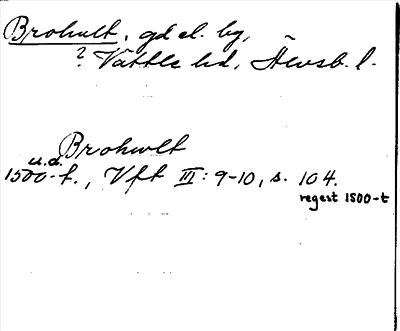 Brohult, gd el. by,
? Vättle hd, Älvsb. l.
Brohwlt
u.d.
1500-t., Vft III: 9-10, s. 104.
regest 1500-t